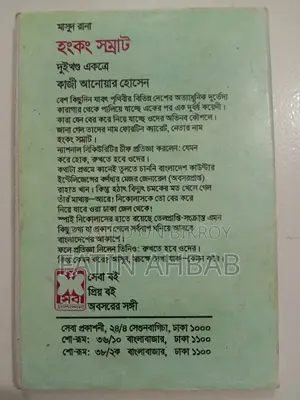 মাসুদ রানা
হংকং সম্রাট
দুইখণ্ড একত্রে
কাজী আনোয়ার হোসেন
বেশ কিছুদিন যাবৎ পৃথিবীর বিভিন্ন দেশের অত্যাধুনিক দুর্ভেদ্য
কারাগার থেকে পালিয়ে যাচ্ছে একের পর এক দুর্ধর্ষ কয়েদী।
কারা যেন বের করে নিয়ে যাচ্ছে ওদের অভিনব কৌশলে।
জানা গেল তাদের নাম ফোরটিন ক্যারেট, নেতার নাম
হংকং সম্রাট।
ন্যাশনাল সিকিউরিটির চীফ প্রতিজ্ঞা করলেন: যেমন
করে হোক, রুখতে হবে ওদের।
কথাটা প্রথমে কানেই তুলতে চাননি বাংলাদেশ কাউন্টার
ইন্টেলিজেন্সের কর্ণধার মেজর জেনারেল (অবসরপ্রাপ্ত)
রাহাত খান। কিন্তু হঠাৎ বিদ্যুৎ চমকের মত খেলে গেল
তাঁর মাথায়—আরে! নিকোলাসকে তো বের করে
নিয়ে যাবে ওরা ঢাকা জেল থেকে।
স্পাই নিকোলাসের হাতে রয়েছে তেলপ্রাপ্তি-সংক্রান্ত এমন
কিছু তথ্য যা প্রকাশ পেলে সর্বনাশ ঘনিয়ে আসবে
বাংলাদেশের আকাশে।
ফলে প্রতিজ্ঞা নিলেন তিনিও: রুখতে হবে ওদের।
কিন্তু
সেবা বই
প্রিয় বই
অবসরের সঙ্গী
সেবা
সেবা প্রকাশনী, ২৪/৪ সেগুনবাগিচা, ঢাকা ১০০০
শো-রূম: ৩৬/১০ বাংলাবাজার, ঢাকা ১১০০
শো-রূম: ৩৮/২ক বাংলাবাজার, ঢাকা ১১০০
AHBAB